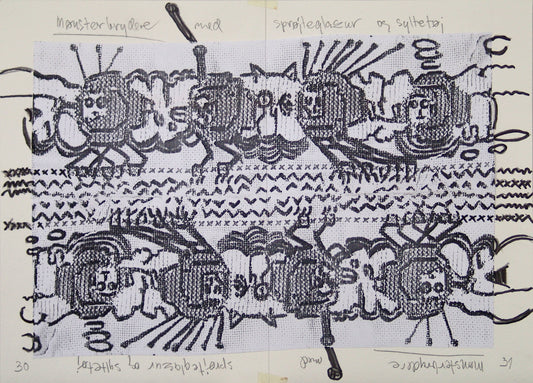 Mønsterbrydere med sprøjteglasur og syltetøj
30 sprøjteglasur og syltetøj med Mønsterbrydere 31